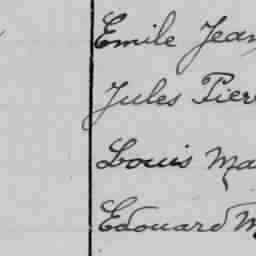 Emile Jean
Jules Pier
Louis Ma
Edouard M